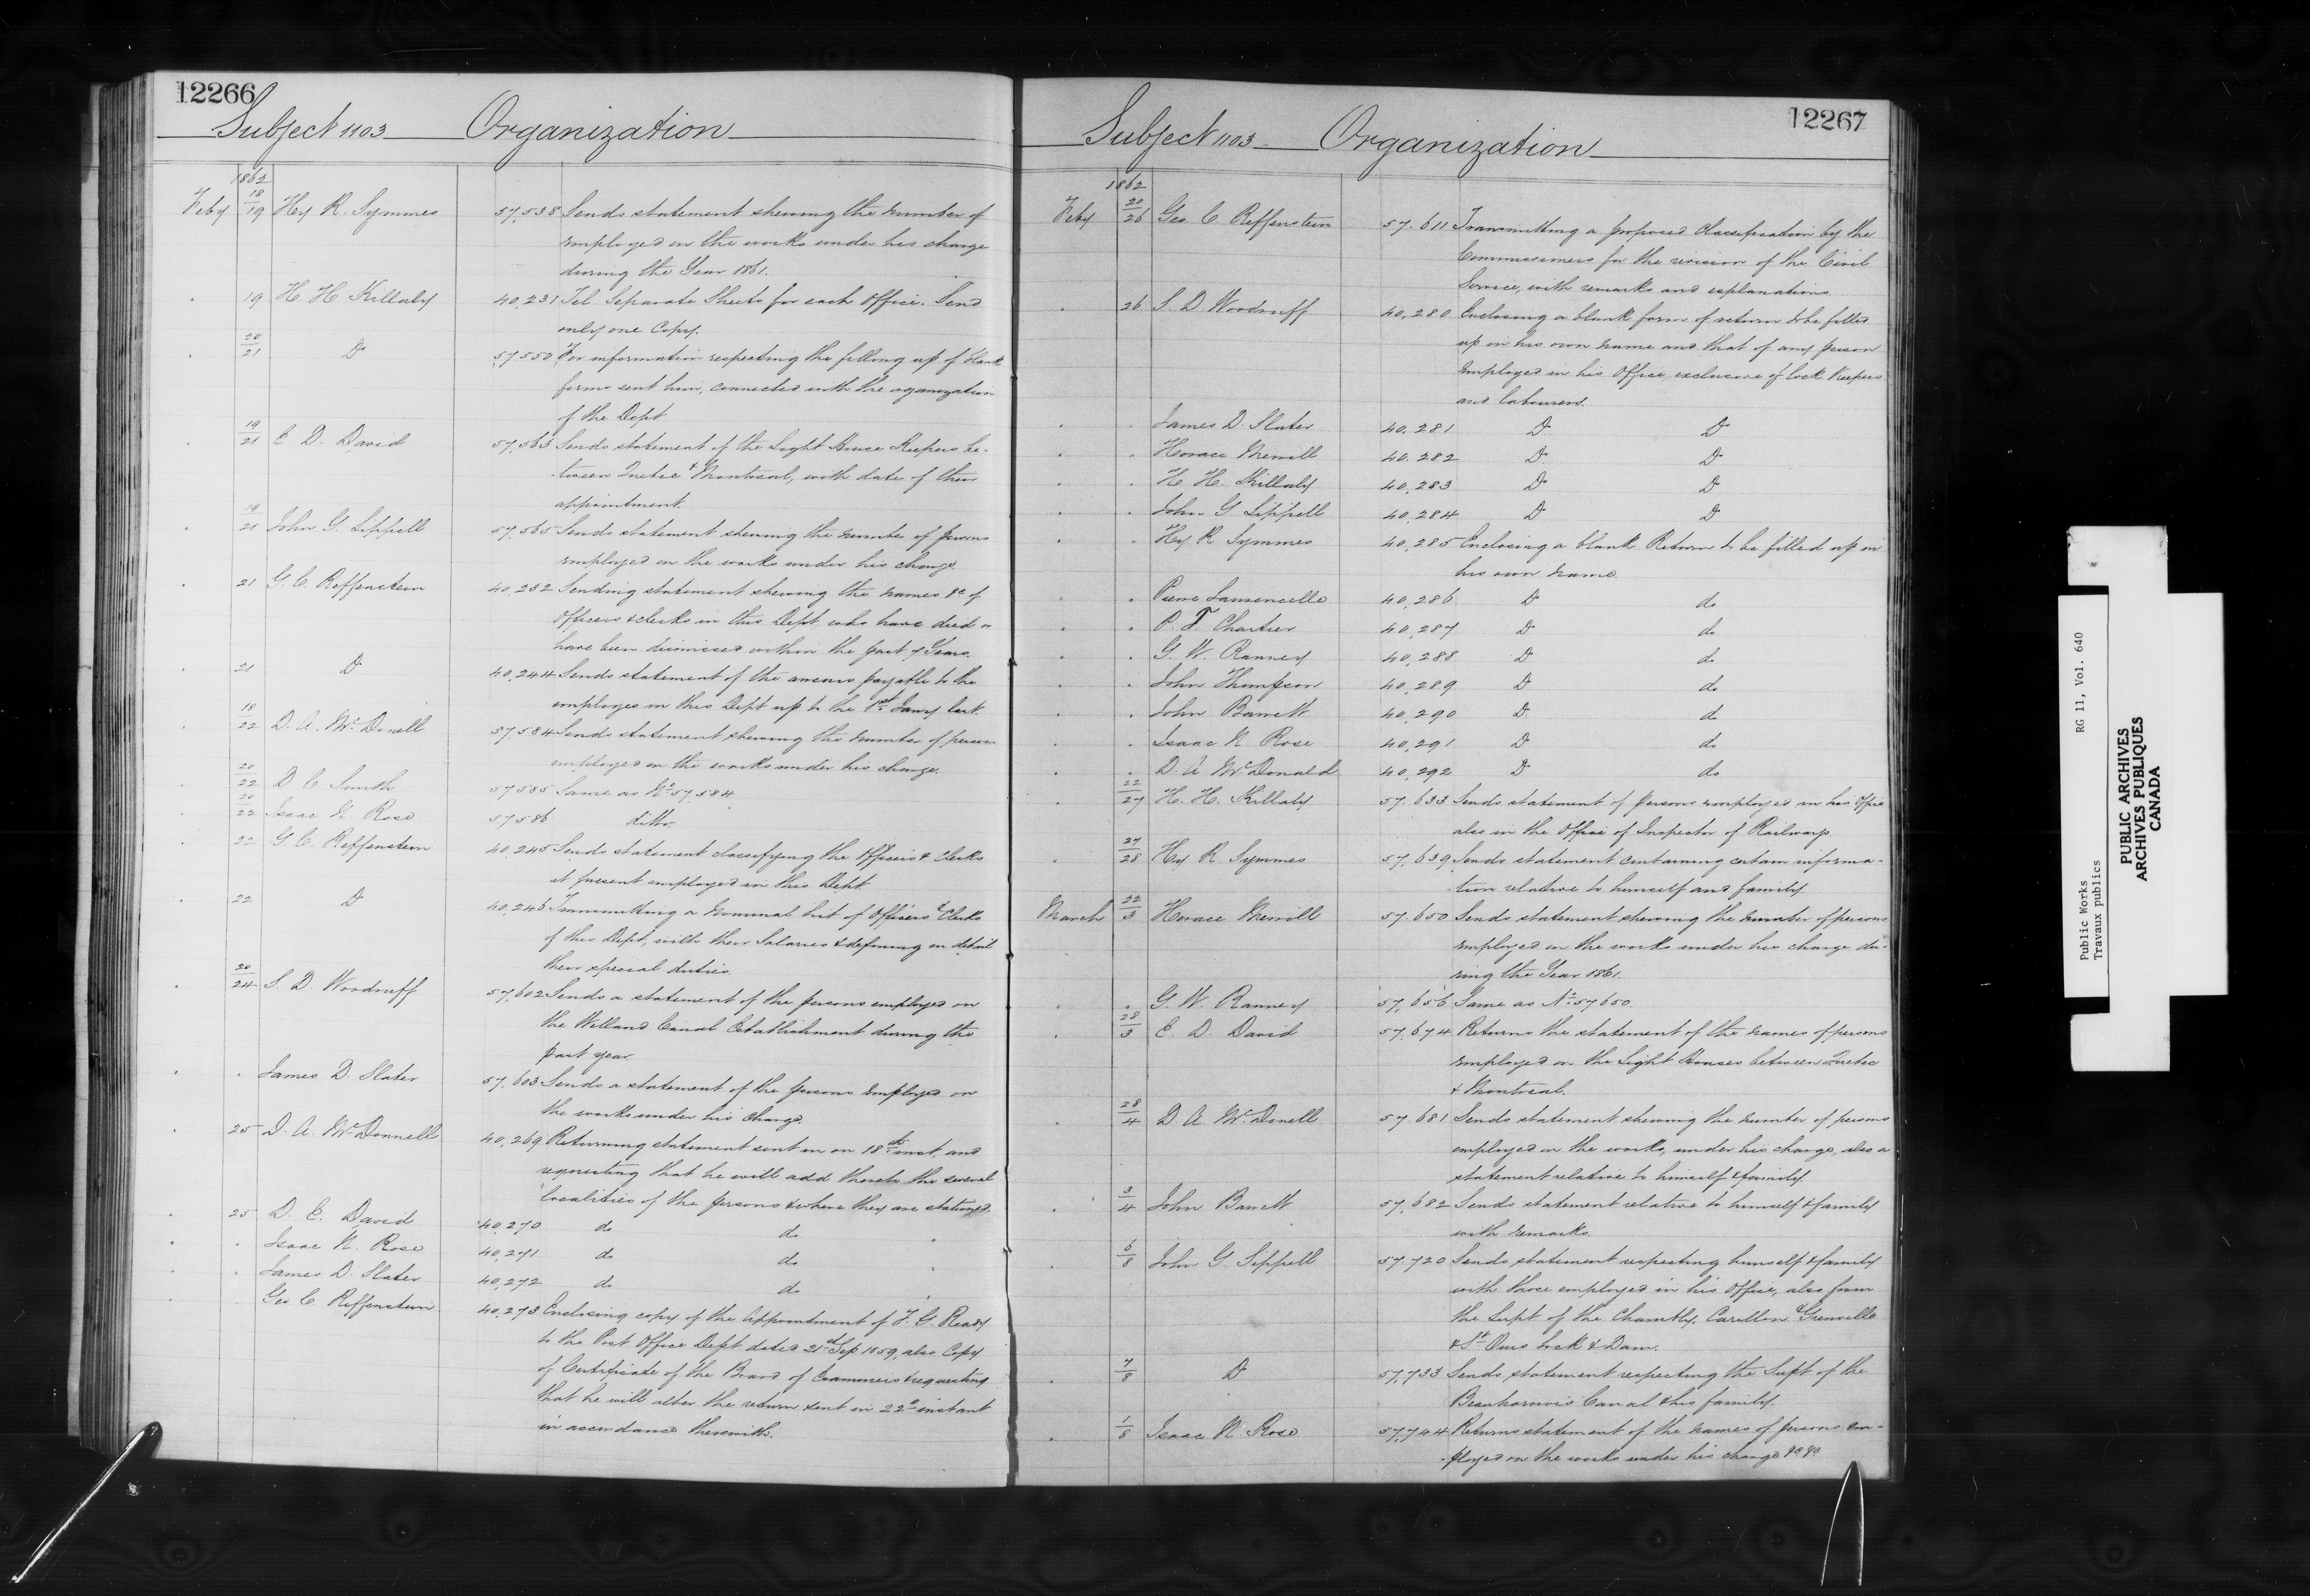 12266
Subject 1103 Organization
1862
Feby 18/19 Hy R. Symmes 57,538 Sends statement shewing the number of
employed on the works under his charge
during the Year 1861.
19 H H Killaly 40,231 Tel. Separate Sheets for each Office. Send
only one Copy.
20/21 Do 57,550 For information respecting the filling up of blank
forms sent him, connected with the organization
of the Dept
19/21 E D. David 57,563 Sends statement of the Light House Keepers be-
-tween Quebec & Montreal, with date of their
appointment.
19/21 John G. Sippell 57,565 Sends statement shewing the number of persons
employed on the works under his charge.
21 G. C. Reiffenstein 40,232 Sending statement shewing the names &c of
Officers & clerks in this Dept. who have died or
have been dismissed within the past 7 Years.
21 Do 40,244 Sends statement of the arrears payable to the
employes in this Dept up to the 1st Jany last.
18/22 D. A. McDonell 57,584 Sends statement shewing the number of persons
employed on the works under his charge.
20/22 D C Smith 57585 Same as No 57,584
20/22 Isaac N. Rose 57586 ditto
22 G. C. Reiffenstein 40,245 Sends statement classifying the Officers & Clerks
at present employed in this Dept.
22 Do 40,246 Transmitting a Nominal list of Officers & Clerks
of this Dept, with their Salaries & defining in detail
their special duties.
20/24 S. D. Woodruff 57,602 Sends a statement of the persons employed on
the Welland Canal Establishment during the
past year.
James D. Slater 57,603 Sends a statement of the persons employed on
the works under his charge.
25 D. A. McDonnell 40,269 Returning statement sent in on 18th inst, and
requesting that he will add thereto the several
localities of the persons & where they are stationed.
25 D. E. David 40,270 do do
Isaac N. Rose 40,271 do do
James D. Slater 40,272 do do
Geo C. Reiffenstein 40,273 Enclosing copy of the Appointment of F. G. Ready
to the Post Office Dept dated 21st Sep 1859, also Copy
of Certificate of the Board of Examiners & requesting
that he will alter the return sent in 22nd instant
in accordance therewith.
12267
Subject 1103. Organization
1862
Feby 20/26 Geo C. Reiffenstein 57.611 Transmitting a proposed Classification by the
Commissioners for the revision of the Civil
Service, with remarks and explanations.
26 S. D Woodruff 40,280 Enclosing a blank form of return to be filled
up in his own name and that of any person
employed in his Office, exclusive of lock Keepers
and labourers.
James D. Slater 40,281 Do Do
Horace Merrill 40.282 Do Do
H H. Killaly 40,283 Do Do
John G Sippell 40,284 Do Do
Hy R Symmes 40,285 Enclosing a blank Return to be filled up in
his own name.
Pierre Larencelle 40,286 Do do
P. T. Chartier 40,287 Do do
G. W. Ranney 40,288 Do do
John Thompson 40,289 Do do
John Barrett 40,290 Do do
Isaac N Rose 40,291 Do do
D. A McDonald 40,292 Do do
22/27 H. H. Killaly 57.633 Sends statement of persons employed in his Office
also in the Office of Inspector of Railways.
27/28 Hy R Symmes 57,639 Sends statement containing certain informa-
-tion relative to himself and family.
March 22/3 Horace Merrill 57,650 Sends statement shewing the number of persons
employed on the works under his charge du-
ring the Year 1861.
G. W. Ranney 57,656 Same as No 57650.
28/3 E. D. David 57,674 Returns the statement of the names of persons
employed on the Light Houses between Quebec
& Montreal.
28/4 D A McDonell 57.681 Sends statement shewing the number of persons
employed on the works, under his charge, also a
statement relative to himself & family
3/4 John Barrett 57,682 Sends statement relative to himself & family
with remarks.
6/8 John G. Sippell 57.720 Sends statement respecting himself & family
with those employed in his Office, also from
the Supt of the Chambly, Carillon & Grenville
& St Ours Lock & Dam.
7/8 Do 57,733 Sends statement respecting the Supt of the
Beauharnois Canal & his family.
1/8 Isaac N Rose 57,744 Returns statement of the names of persons em-
-ployed on the works under his charge &c &c
Public Works RG 11, Vol. 640
Travaux publics
PUBLIC ARCHIVES
ARCHIVES PUBLIQUES
CANADA